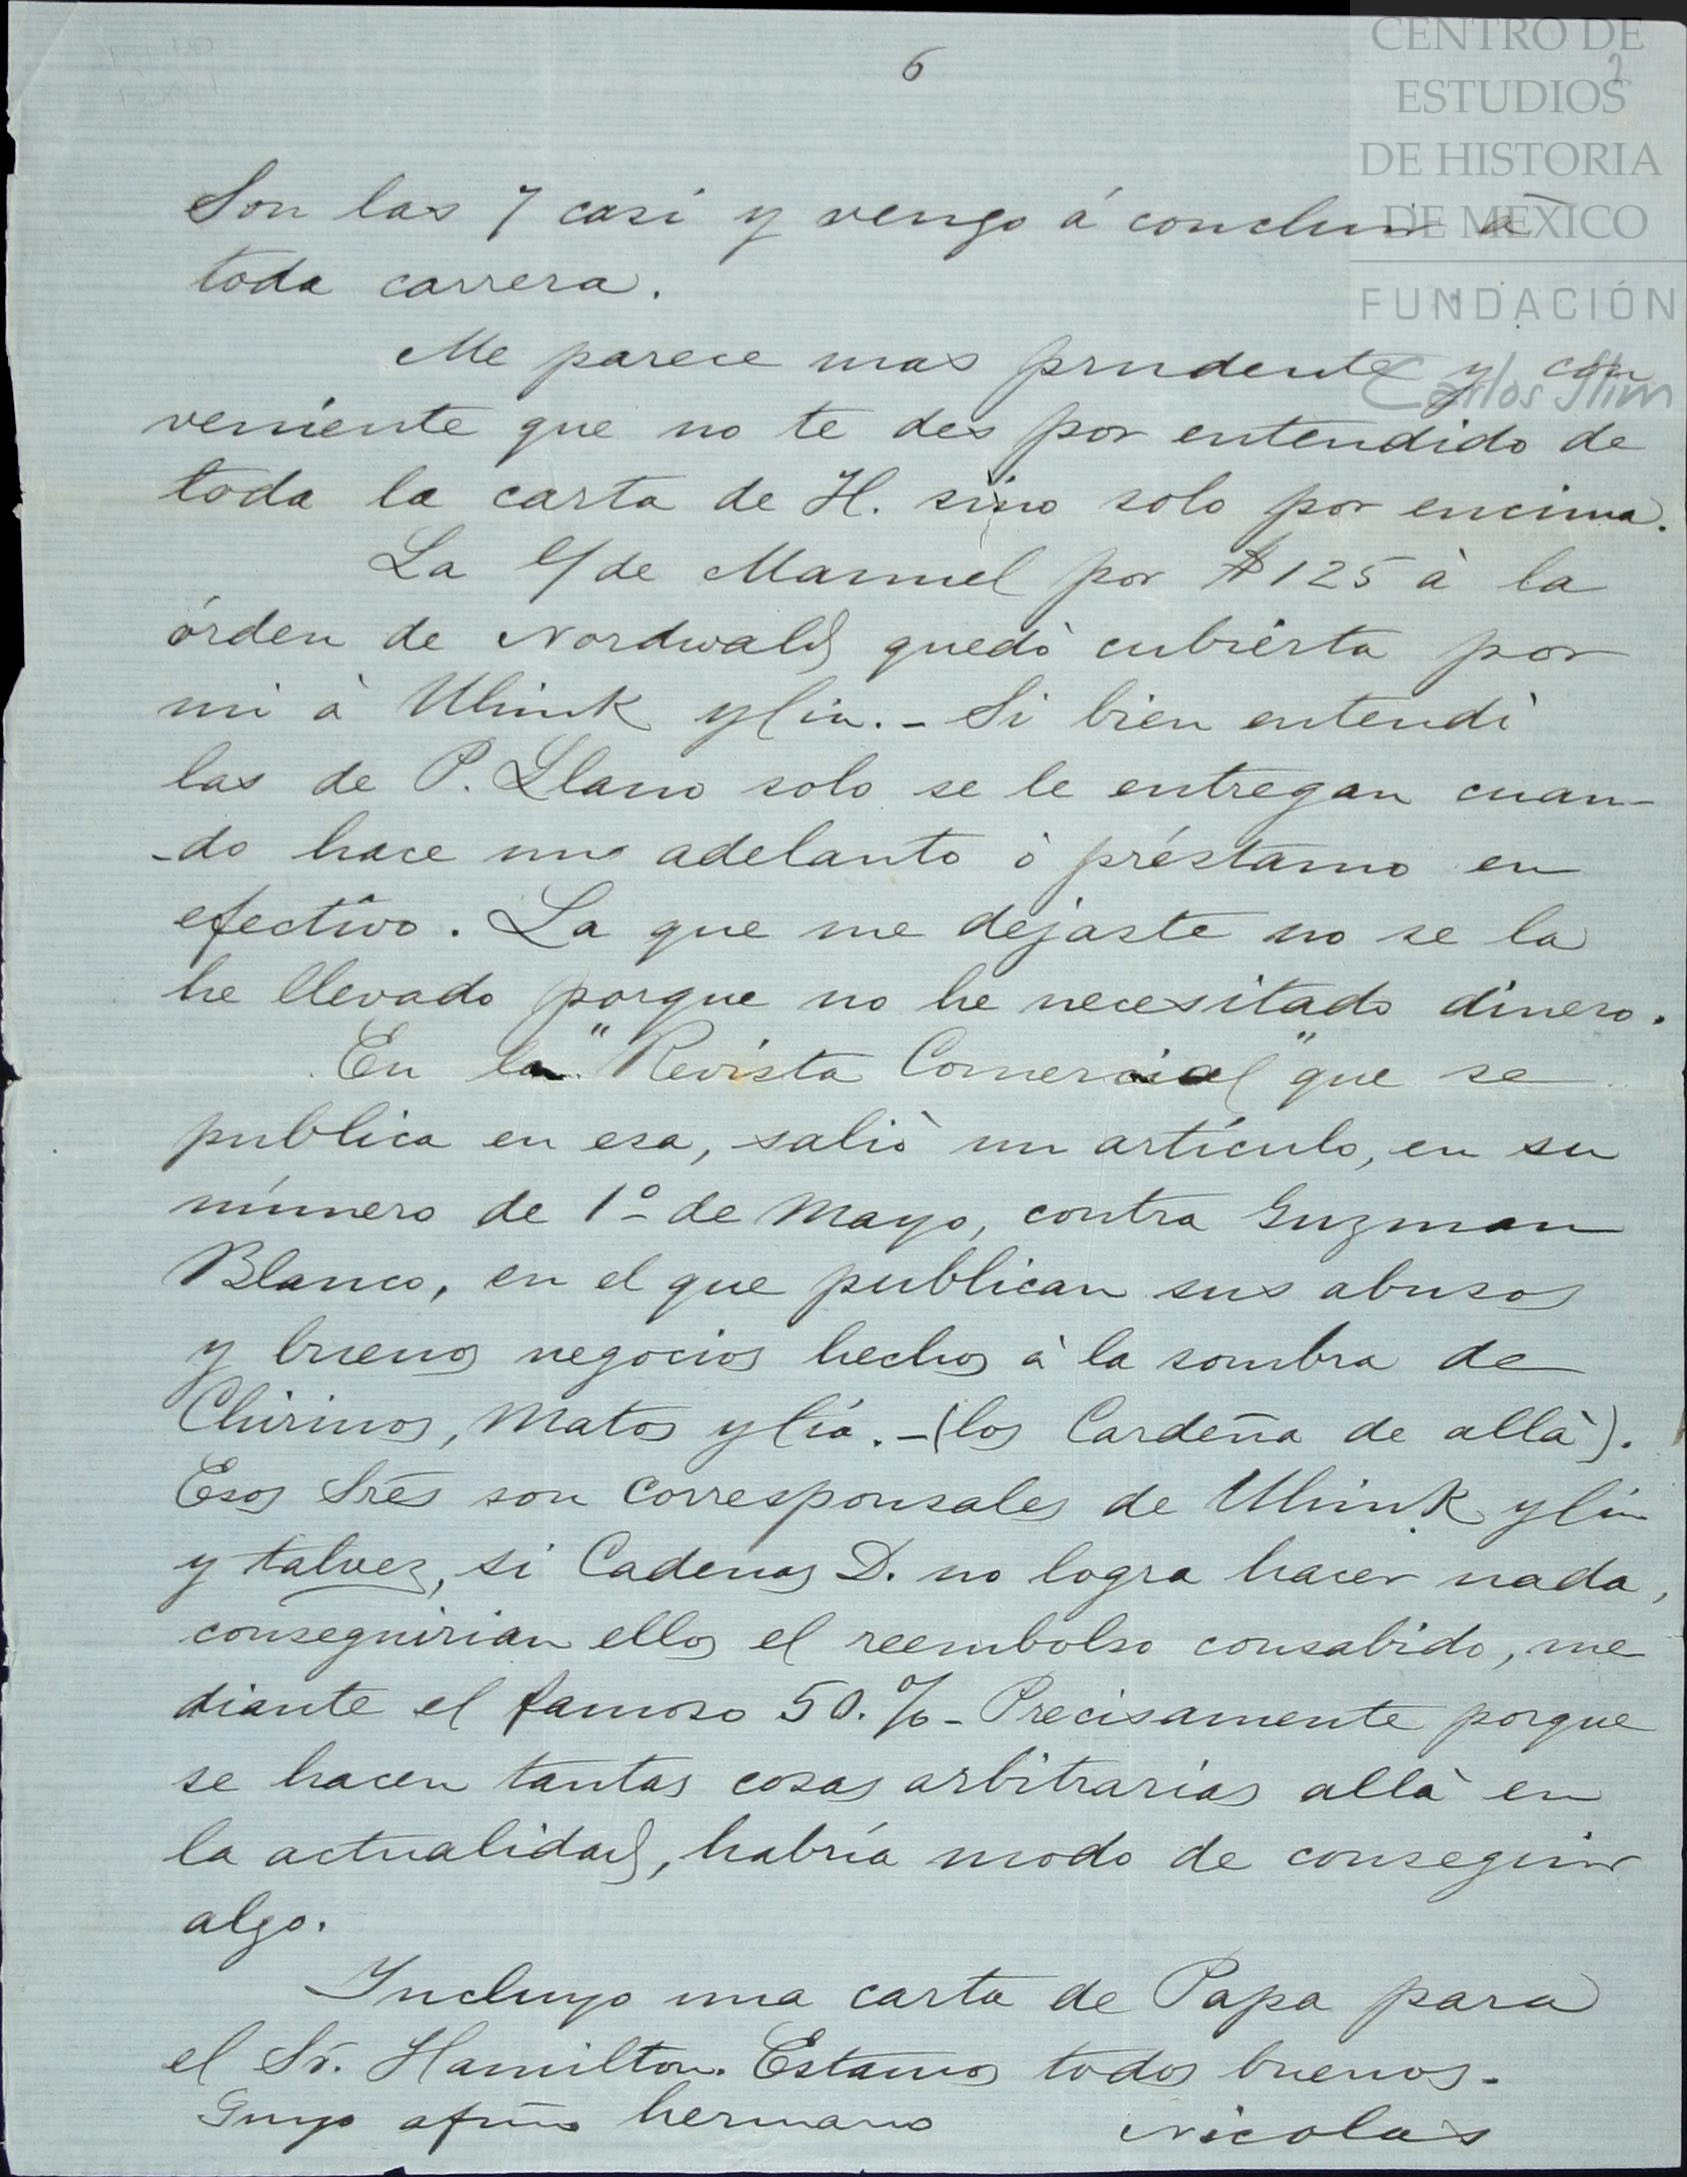 6
CENTRO DE
ESTUDIOS
DE HISTORIA
DE MÉXICO
FUNDACIÓN
Carlos Slim
2
Son las 7 casi y vengo á concluir á
toda carrera.
Me parece mas prudente y con
veniente que no te des por entendido de
toda la carta de H. sino solo por encima.
La L/ de Manuel por $125 à la
órden de Nordwald quedò cubierta por
mi à Uhink y Cia. - Si bien entendì
las de P. Llano solo se le entregan cuan-
-do hace uno adelanto ò préstamo en
efectivo. La que me dejaste no se la
he llevado porque no he necesitado dinero.
En la "Revista Comercial" que se
publica en esa, saliò un artículo, en su
número de 1º de Mayo, contra Guzman
Blanco, en el que publican sus abusos
y buenos negocios hechos à la sombra de
Chirinos, Matos y Cía. - (los Cardeña de allà).
Esos Sres son corresponsales de Uhink y Cia
y talvez, si Cadenas D. no logra hacer nada,
conseguirian ellos el reembolso consabido, me
diante el famoso 50.% - Precisamente porque
se hacen tantas cosas arbitrarias allà en
la actualidad, habría modo de conseguir
algo.
Incluyo una carta de Papa para
el Sr. Hamilton. Estamos todos buenos.
Suyo afmo hermano Nicolas